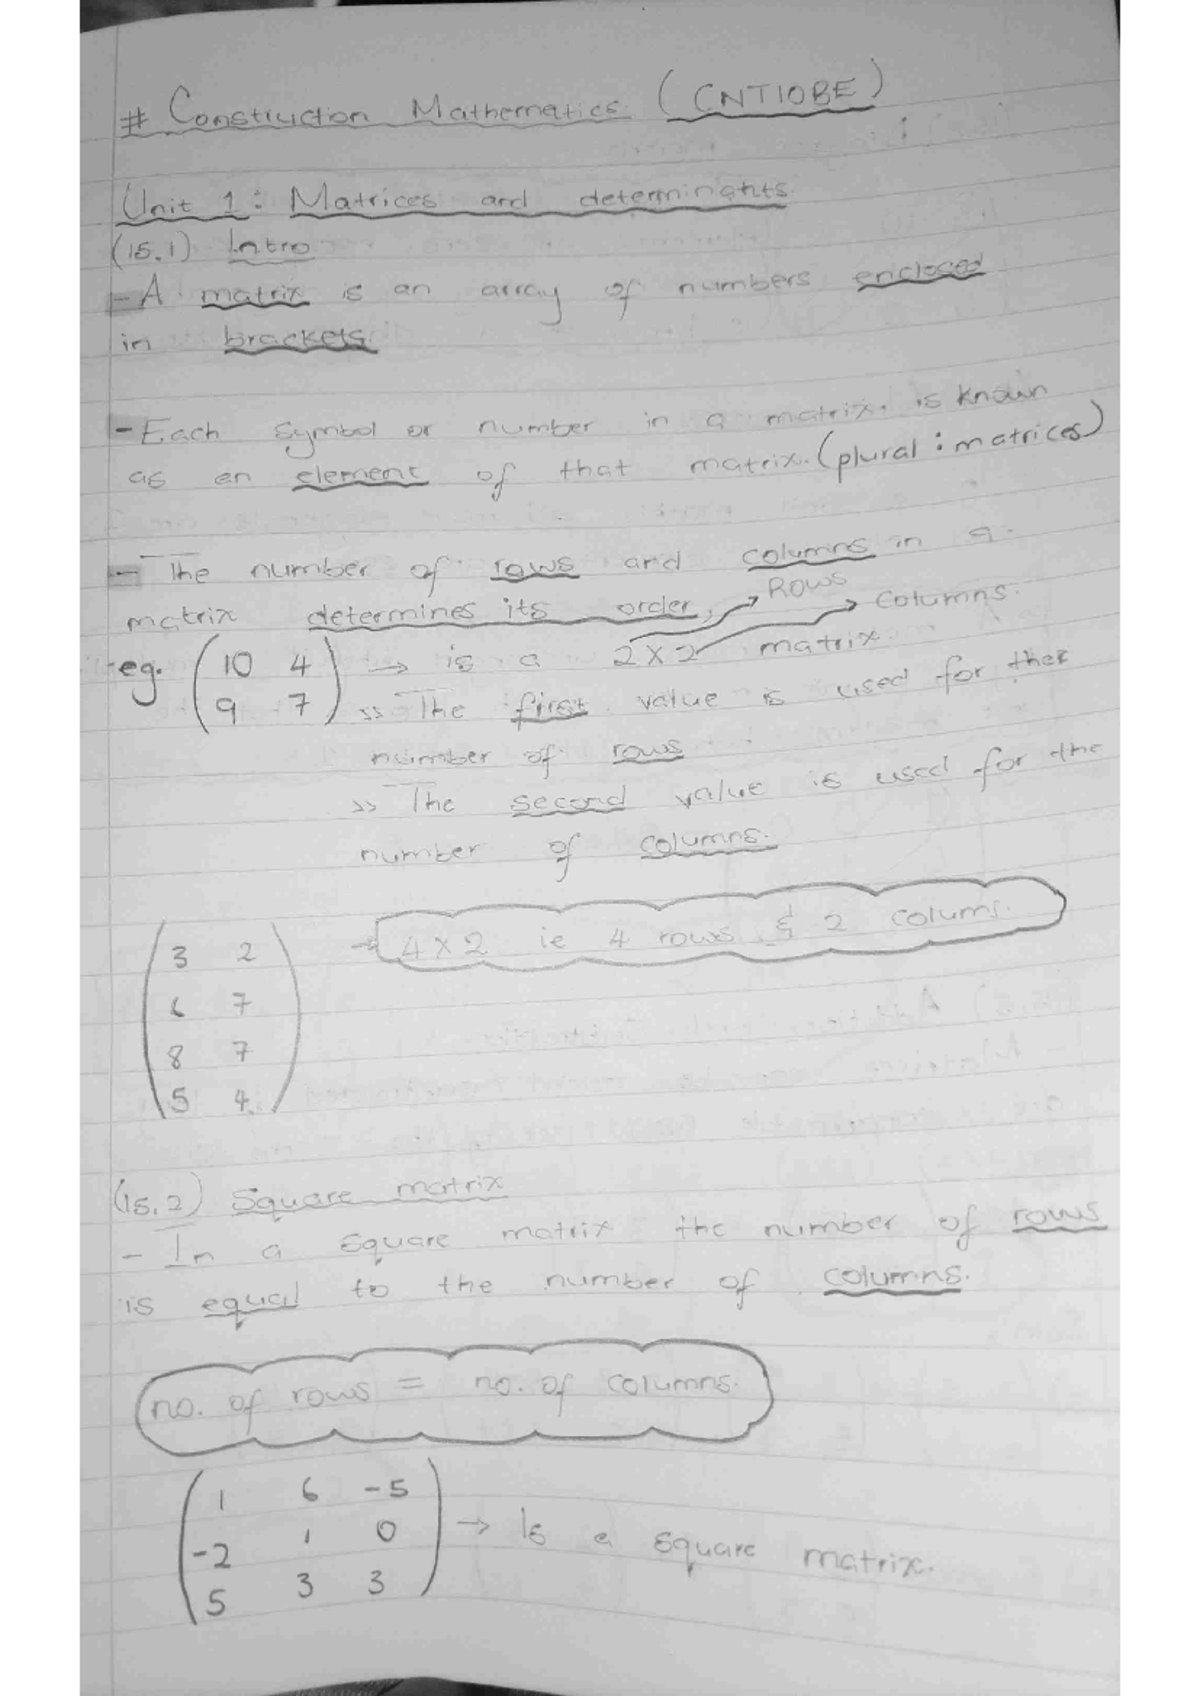 # Construction Mathematics (CNTIOBE)
Unit 1: Matrices and determinants
(15.1) Intro
- A matrix is an array of numbers enclosed
in brackets
- Each symbol or number in a matrix is known
as an element of that matrix. (plural : matrices)
- The number of rows and columns in a
matrix determines its order,
Rows
Columns.
eg. (10 4 → is a 2x2 matrix
9 7) >> The first value is used for the
number of rows
>> The second value is used for the
number of columns.
3 2 → 4x2 ie 4 rows & 2 colums.
6 7
8 7
5 4
(15.2) Square matrix
- In a square matrix the number of rows
is equal to the number of columns.
no. of rows = no. of columns.
1 6 -5
-2 1 0 → Is a square matrix.
5 3 3